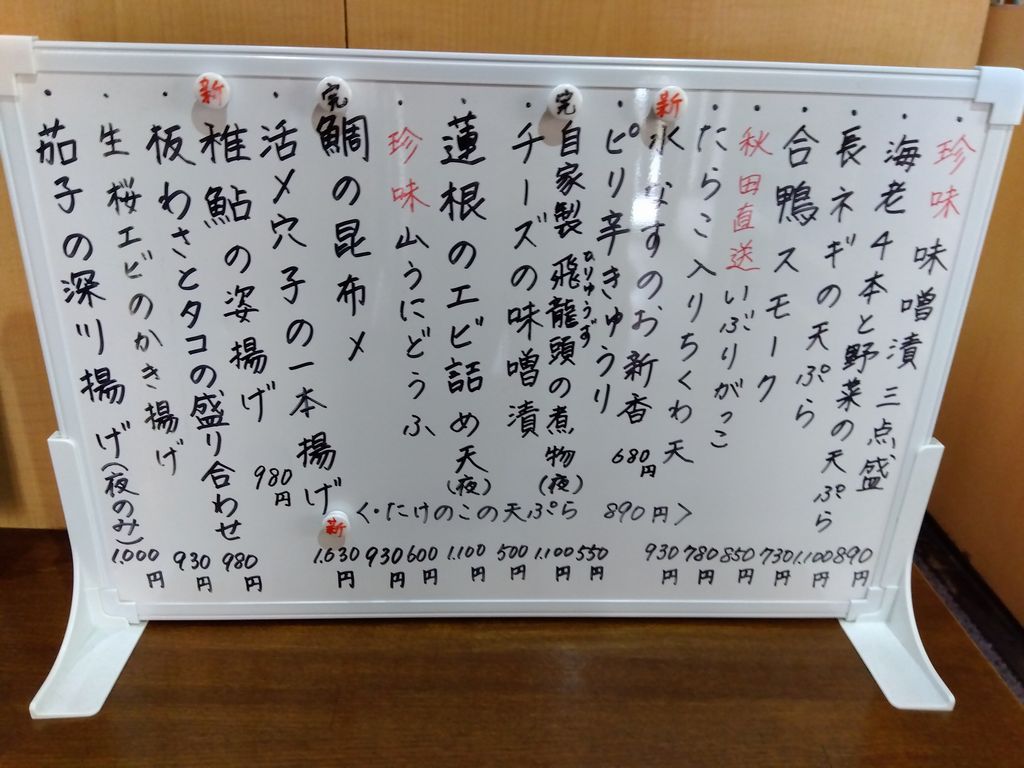 ・珍味 味噌漬三点盛 890円
・海老4本と野菜の天ぷら 1.100円
・長ネギの天ぷら 730円
・合鴨スモーク 850円
・秋田直送 いぶりがっこ 780円
・たらこ入りちくわ天 930円
新 水なすのお新香 680円
・ピリ辛きゅうり 550円
完 自家製 飛龍頭の煮物(夜) 1.100円
ひりゅうず
・チーズの味噌漬 500円
・蓮根のエビ詰め天(夜) 1.100円
・珍味 山うにどうふ 600円
完 鯛の昆布〆 930円
・活〆穴子の一本揚げ 1.630円
新 稚鮎の姿揚げ 980円
・板わさとタコの盛り合わせ 980円
・生桜エビのかき揚げ 930円
・茄子の深川揚げ(夜のみ) 1.000円
新 <・たけのこの天ぷら 890円>